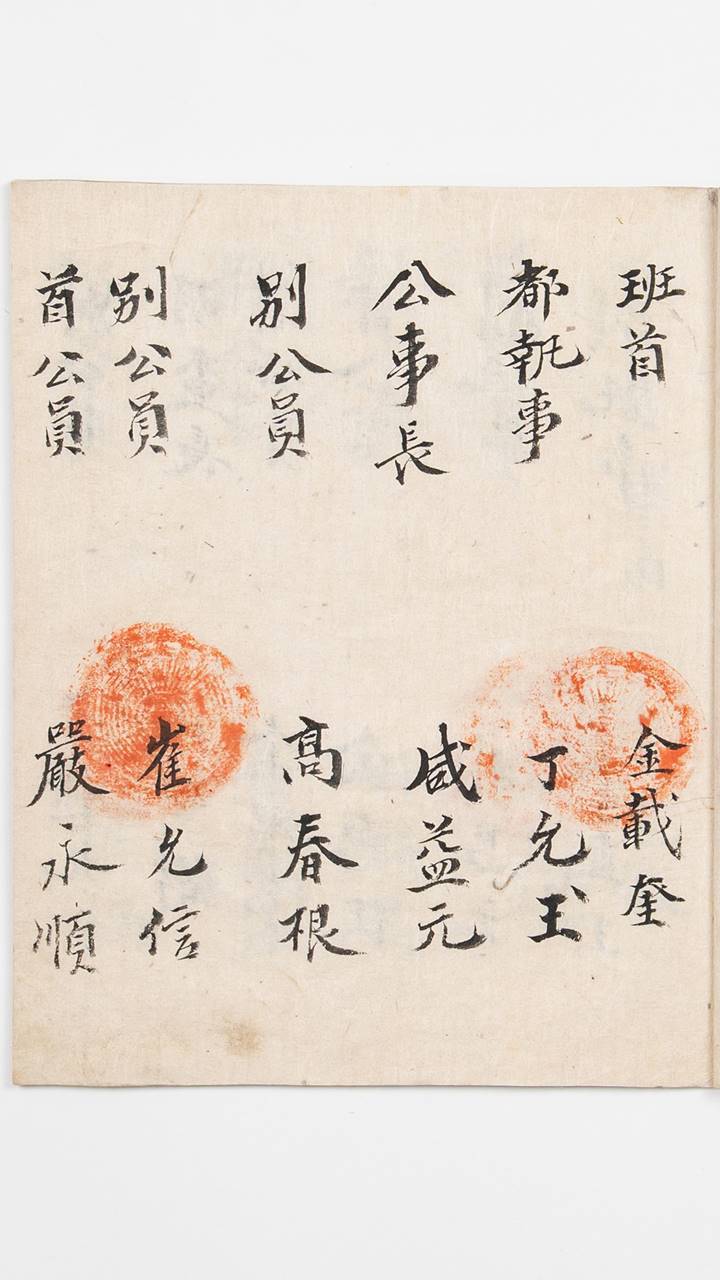 班首 金載奎
都執事 丁允玉
公事長 咸益元
別公員 高春根
別公員 崔允信
首公員 嚴永順